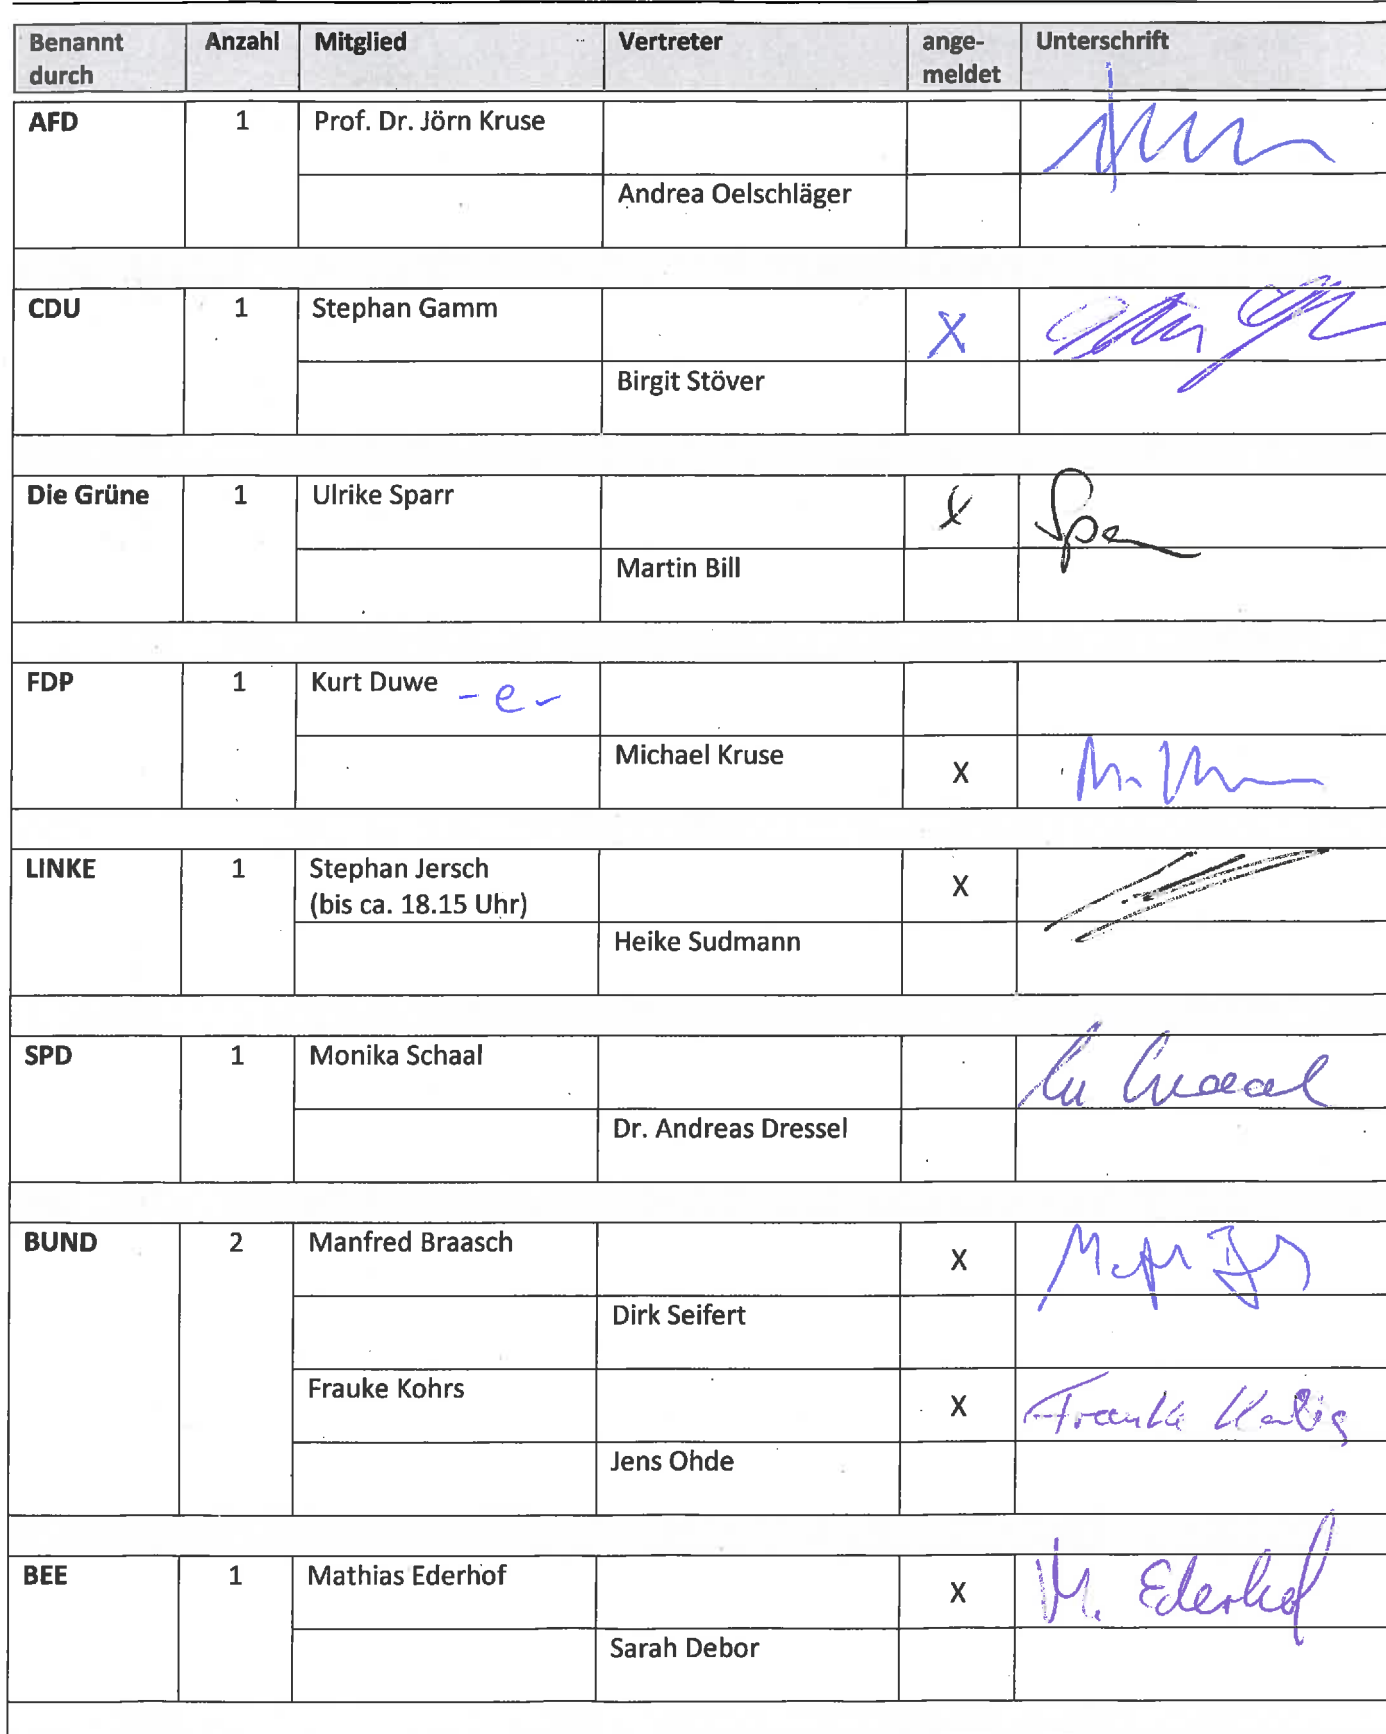 Benannt durch Anzahl Mitglied Vertreter ange- meldet Unterschrift
AFD 1 Prof. Dr. Jörn Kruse
Andrea Oelschläger
CDU 1 Stephan Gamm X
Birgit Stöver
Die Grüne 1 Ulrike Sparr X
Martin Bill
FDP 1 Kurt Duwe - e -
Michael Kruse X
LINKE 1 Stephan Jersch X
(bis ca. 18.15 Uhr)
Heike Sudmann
SPD 1 Monika Schaal
Dr. Andreas Dressel
BUND 2 Manfred Braasch X
Dirk Seifert
Frauke Kohrs X
Jens Ohde
BEE 1 Mathias Ederhof X M. Ederhof
Sarah Debor